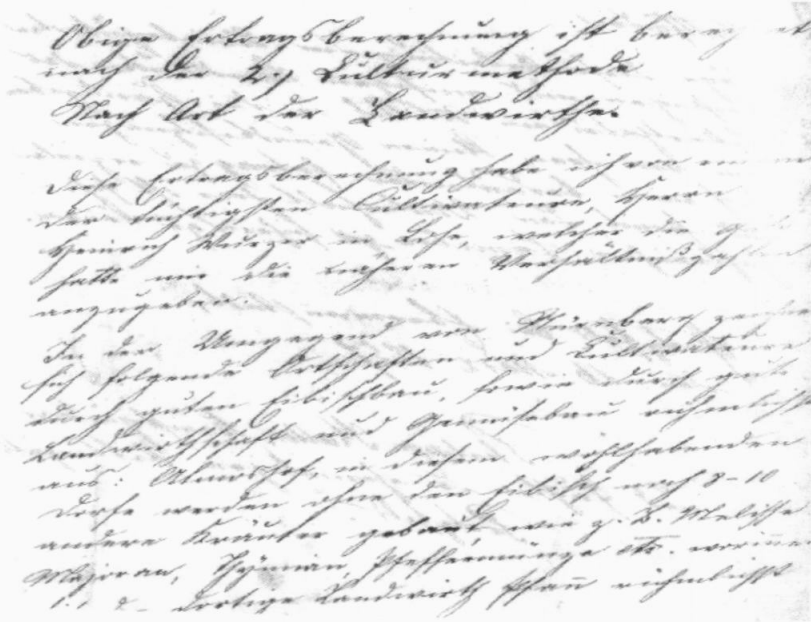 Obige Ertragsberechnung ist berez
nach der 2.) Culturmethode
Nach Art der Landwirthe.
Diese Ertragsberechnung habe ich von
der tüchtigsten Cultivateure, Herrn
Heinrich Wurzer in Lohe, welcher die
hatte mir die näheren Verhältnißzahlen
anzugeben.
In der Umgegend von Nürnberg
sich folgende Ortschaften und Cultivateure
durch guten Eibischbau, sowie durch gute
Landwirthschaft und Gemüsebau rühmlichst
aus: Almoshof, in diesem wohlhabenden
Dorfe werden ohne den Eibisch noch 8-10
andere Kräuter gebaut, wie z. B. Melisse
Majoran, Thymian, Pfeffermünze etc. worinnen
dortige Landwirth Pfann rühmlichst